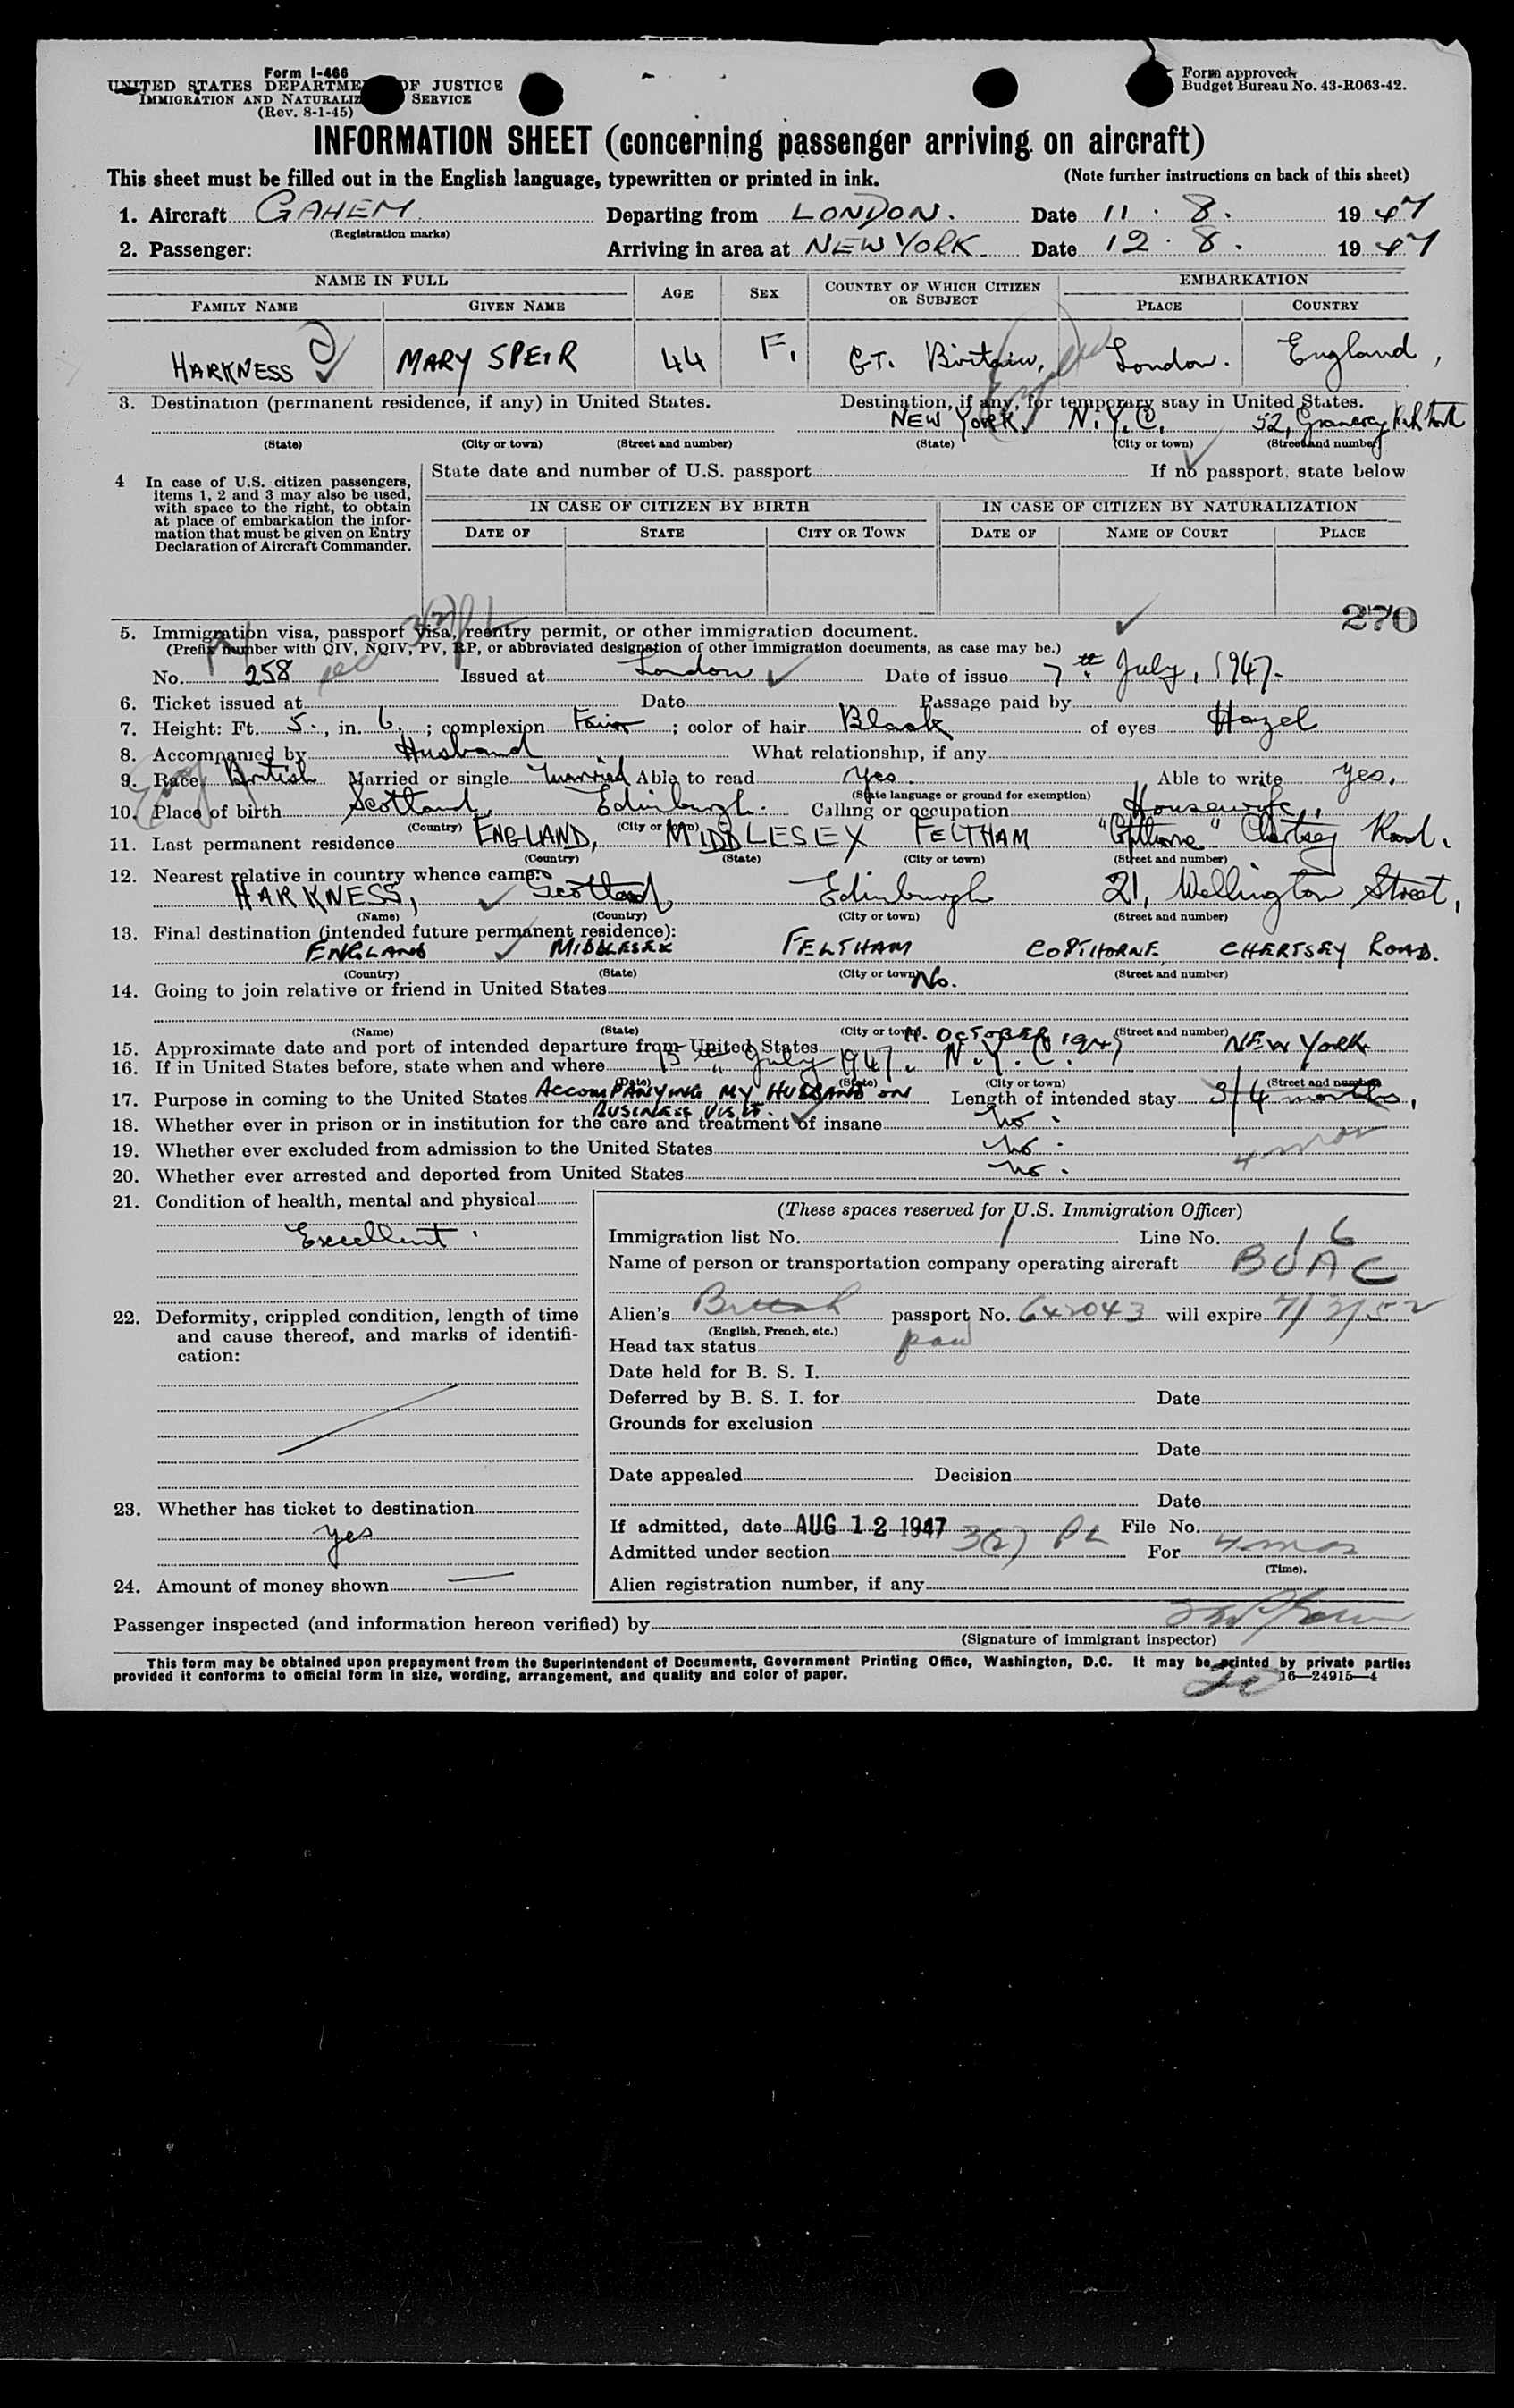 Form I-466
UNITED STATES DEPARTMENT OF JUSTICE
IMMIGRATION AND NATURALIZ SERVICE
(Rev. 8-1-45)
Form approved
Budget Bureau No. 43-R063-42.
INFORMATION SHEET (concerning passenger arriving on aircraft)
This sheet must be filled out in the English language, typewritten or printed in ink. (Note further instructions on back of this sheet)
1. Aircraft GAHEM Departing from LONDON. Date 11. 8. 1947
(Registration marks)
2. Passenger: Arriving in area at NEW YORK Date 12. 8. 1947
NAME IN FULL AGE SEX COUNTRY OF WHICH CITIZEN OR SUBJECT EMBARKATION
FAMILY NAME GIVEN NAME PLACE COUNTRY
HARKNESS MARY SPEIR 44 F. GT. Britain, London. England,
3. Destination (permanent residence, if any) in United States. Destination, if any, for temporary stay in United States.
NEW YORK. N.Y.C. 52, Gramercy Park North
(State) (City or town) (Street and number) (State) (City or town) (Street and number)
4 In case of U.S. citizen passengers, items 1, 2 and 3 may also be used, with space to the right, to obtain at place of embarkation the information that must be given on Entry Declaration of Aircraft Commander.
State date and number of U.S. passport If no passport, state below
IN CASE OF CITIZEN BY BIRTH IN CASE OF CITIZEN BY NATURALIZATION
DATE OF STATE CITY OR TOWN DATE OF NAME OF COURT PLACE
270
5. Immigration visa, passport visa, reentry permit, or other immigration document.
(Prefix number with QIV, NQIV, PV, RP, or abbreviated designation of other immigration documents, as case may be.)
No. 258 Issued at London Date of issue 7th July, 1947.
6. Ticket issued at Date Passage paid by
7. Height: Ft. 5., in. 6.; complexion Fair; color of hair Black of eyes Hazel
8. Accompanied by Husband What relationship, if any
9. Race British Married or single Married Able to read Yes. Able to write Yes.
(State language or ground for exemption)
10. Place of birth Scotland, Edinburgh. Calling or occupation Housewife,
(Country) (City or town)
11. Last permanent residence ENGLAND, MIDDLESEX FELTHAM "Copthorne" Chertsey Road.
(Country) (State) (City or town) (Street and number)
12. Nearest relative in country whence came:
HARKNESS, Scotland, Edinburgh 21, Wellington Street,
(Name) (Country) (City or town) (Street and number)
13. Final destination (intended future permanent residence):
ENGLAND MIDDLESEX FELTHAM COPTHORNE, CHERTSEY ROAD.
(Country) (State) (City or town) (Street and number)
14. Going to join relative or friend in United States No.
(Name) (State) (City or town) (Street and number)
15. Approximate date and port of intended departure from United States OCTOBER 1947 NEW YORK
16. If in United States before, state when and where 15th July 1947. N.Y.C.
(Date) (State) (City or town) (Street and number)
17. Purpose in coming to the United States ACCOMPANYING MY HUSBAND ON Length of intended stay 3/4 months,
BUSINESS VISIT.
18. Whether ever in prison or in institution for the care and treatment of insane no.
19. Whether ever excluded from admission to the United States no.
4 mos
20. Whether ever arrested and deported from United States no.
21. Condition of health, mental and physical
Excellent.
22. Deformity, crippled condition, length of time and cause thereof, and marks of identification:
23. Whether has ticket to destination
yes
24. Amount of money shown —
(These spaces reserved for U.S. Immigration Officer)
Immigration list No. 1 Line No. 16
Name of person or transportation company operating aircraft BOAC
Alien's British passport No. 642043 will expire 7/3/52
(English, French, etc.)
Head tax status
Date held for B. S. I.
Deferred by B. S. I. for Date
Grounds for exclusion
Date
Date appealed Decision
Date
If admitted, date AUG 12 1947 File No.
Admitted under section 3(2) PL For 4 mos
(Time).
Alien registration number, if any
Passenger inspected (and information hereon verified) by
(Signature of immigrant inspector)
This form may be obtained upon prepayment from the Superintendent of Documents, Government Printing Office, Washington, D.C. It may be printed by private parties
provided it conforms to official form in size, wording, arrangement, and quality and color of paper. 16—24915—4
20